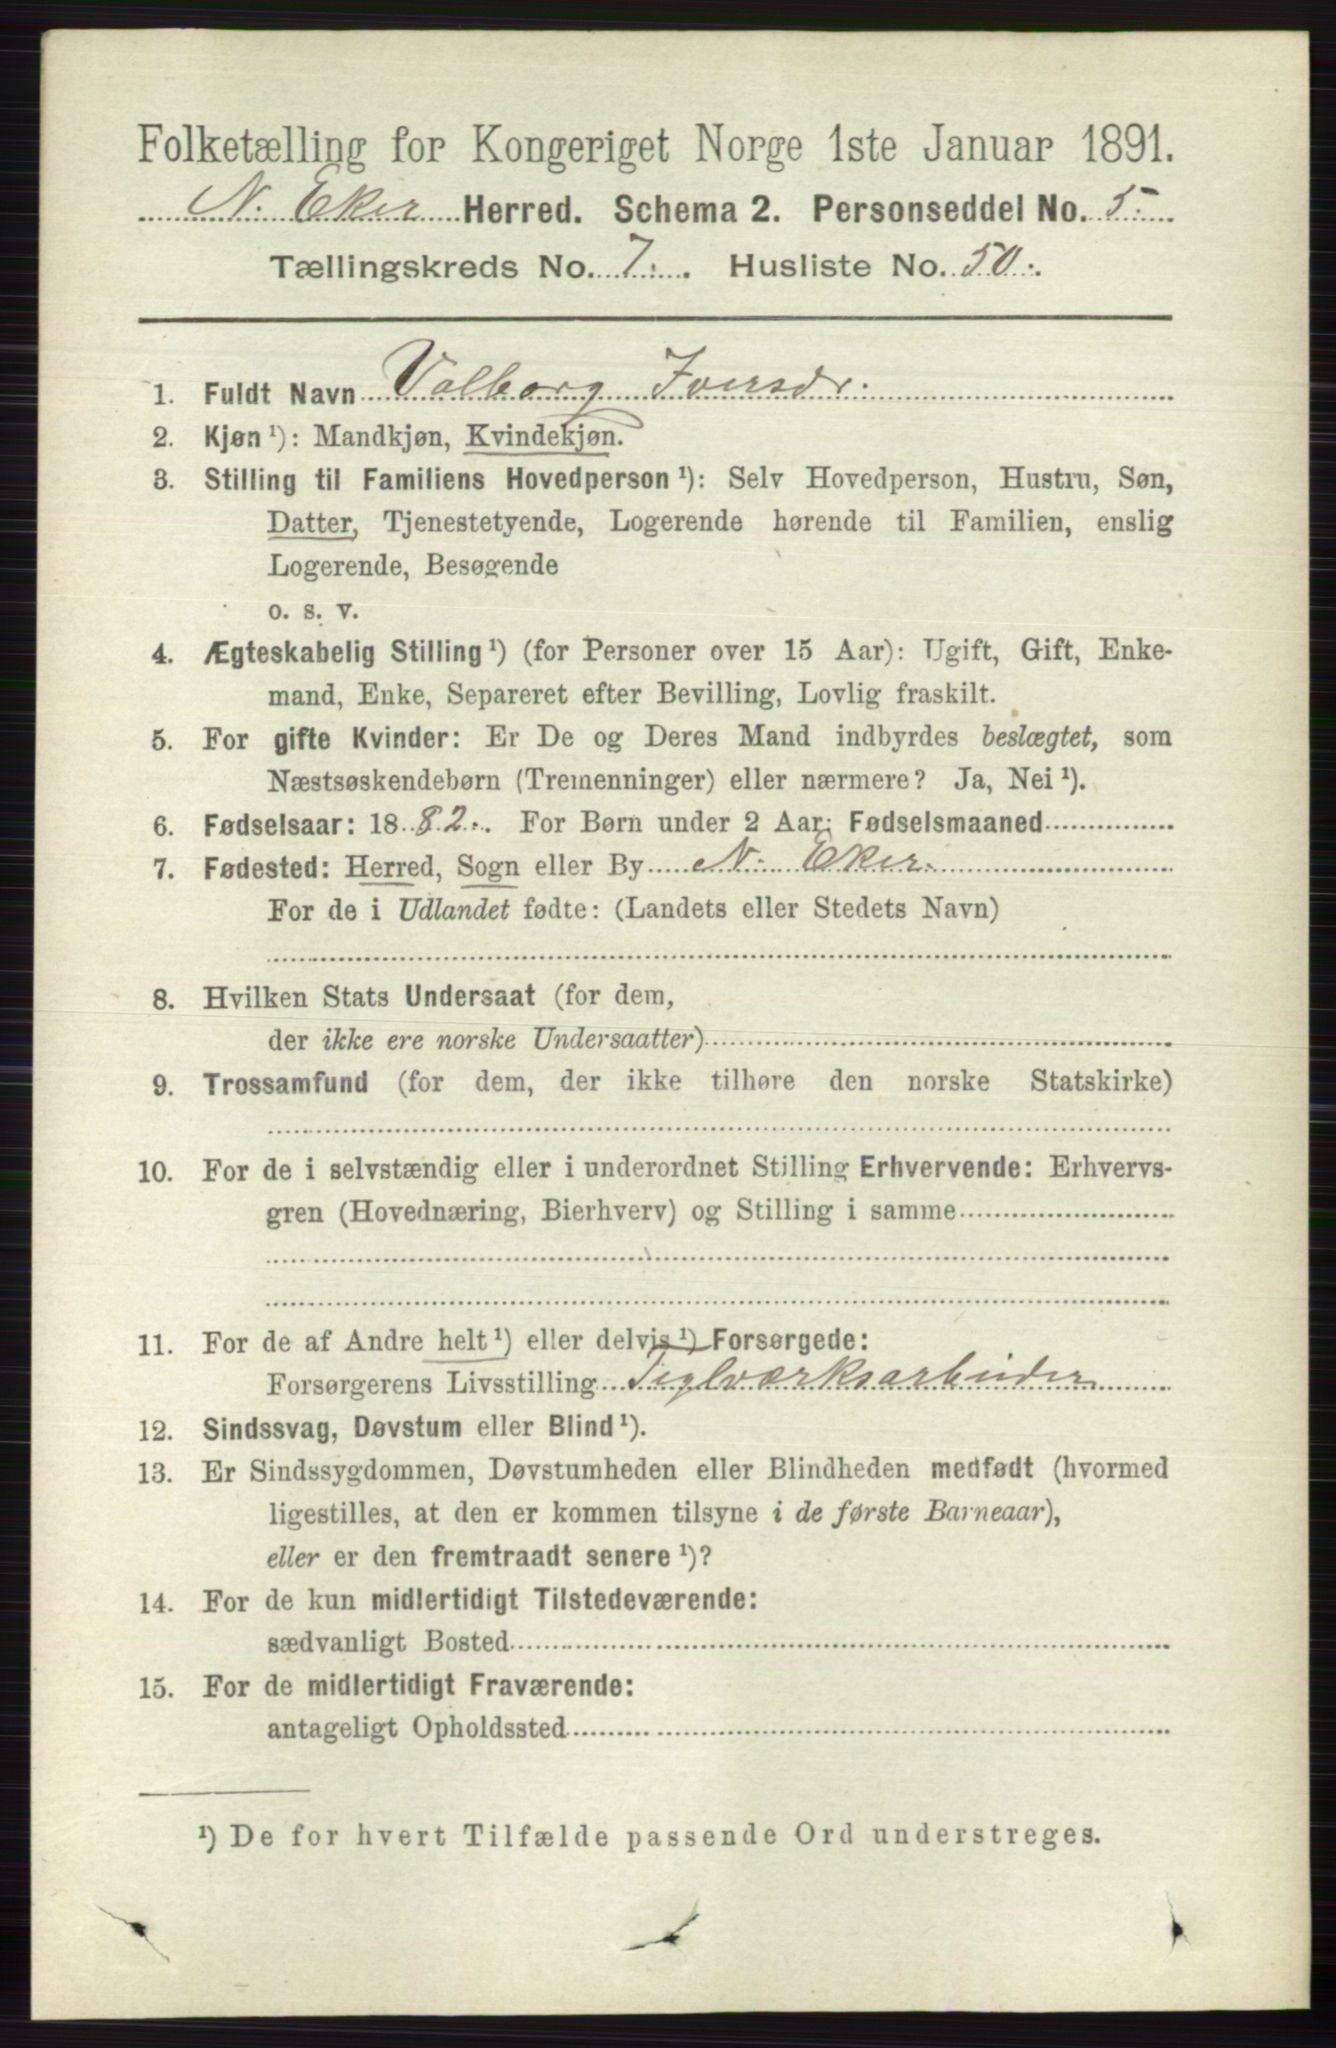 Folketælling for Kongeriget Norge 1ste Januar 1891.
N. Eker Herred. Schema 2. Personseddel No. 5.
Tællingskreds No. 7. Husliste No. 50.
1. Fuldt Navn Valborg Iversdr.
2. Kjøn ¹): Mandkjøn, Kvindekjøn.
3. Stilling til Familiens Hovedperson ¹): Selv Hovedperson, Hustru, Søn,
Datter, Tjenestetyende, Logerende hørende til Familien, enslig
Logerende, Besøgende
o. s. v.
4. Ægteskabelig Stilling ¹) (for Personer over 15 Aar): Ugift, Gift, Enke-
mand, Enke, Separeret efter Bevilling, Lovlig fraskilt.
5. For gifte Kvinder: Er De og Deres Mand indbyrdes beslægtet, som
Næstsøskendebørn (Tremenninger) eller nærmere? Ja, Nei ¹).
6. Fødselsaar: 1882. For Børn under 2 Aar: Fødselsmaaned
7. Fødested: Herred, Sogn eller By N. Eker.
For de i Udlandet fødte: (Landets eller Stedets Navn)
8. Hvilken Stats Undersaat (for dem,
der ikke ere norske Undersaatter)
9. Trossamfund (for dem, der ikke tilhøre den norske Statskirke)
10. For de i selvstændig eller i underordnet Stilling Erhvervende: Erhvervs-
gren (Hovednæring, Bierhverv) og Stilling i samme
11. For de af Andre helt ¹) eller delvis ¹) Forsørgede:
Forsørgerens Livsstilling Teglværksarbeider
12. Sindssvag, Døvstum eller Blind ¹).
13. Er Sindssygdommen, Døvstumheden eller Blindheden medfødt (hvormed
ligestilles, at den er kommen tilsyne i de første Barneaar),
eller er den fremtraadt senere ¹)?
14. For de kun midlertidigt Tilstedeværende:
sædvanligt Bosted
15. For de midlertidigt Fraværende:
antageligt Opholdssted
¹) De for hvert Tilfælde passende Ord understreges.